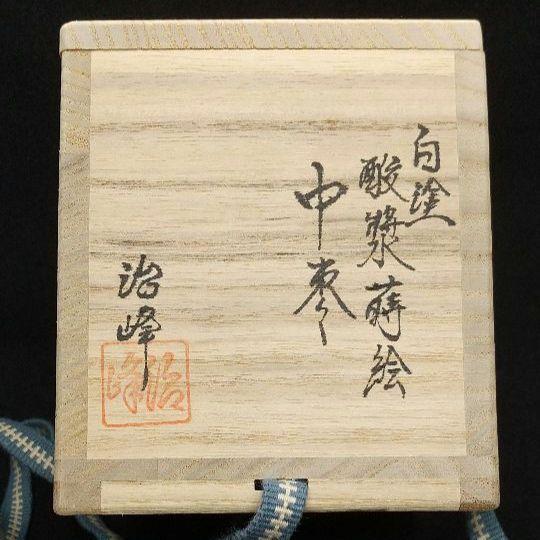 白塗
酸漿蒔絵
中棗
治峰
治峰